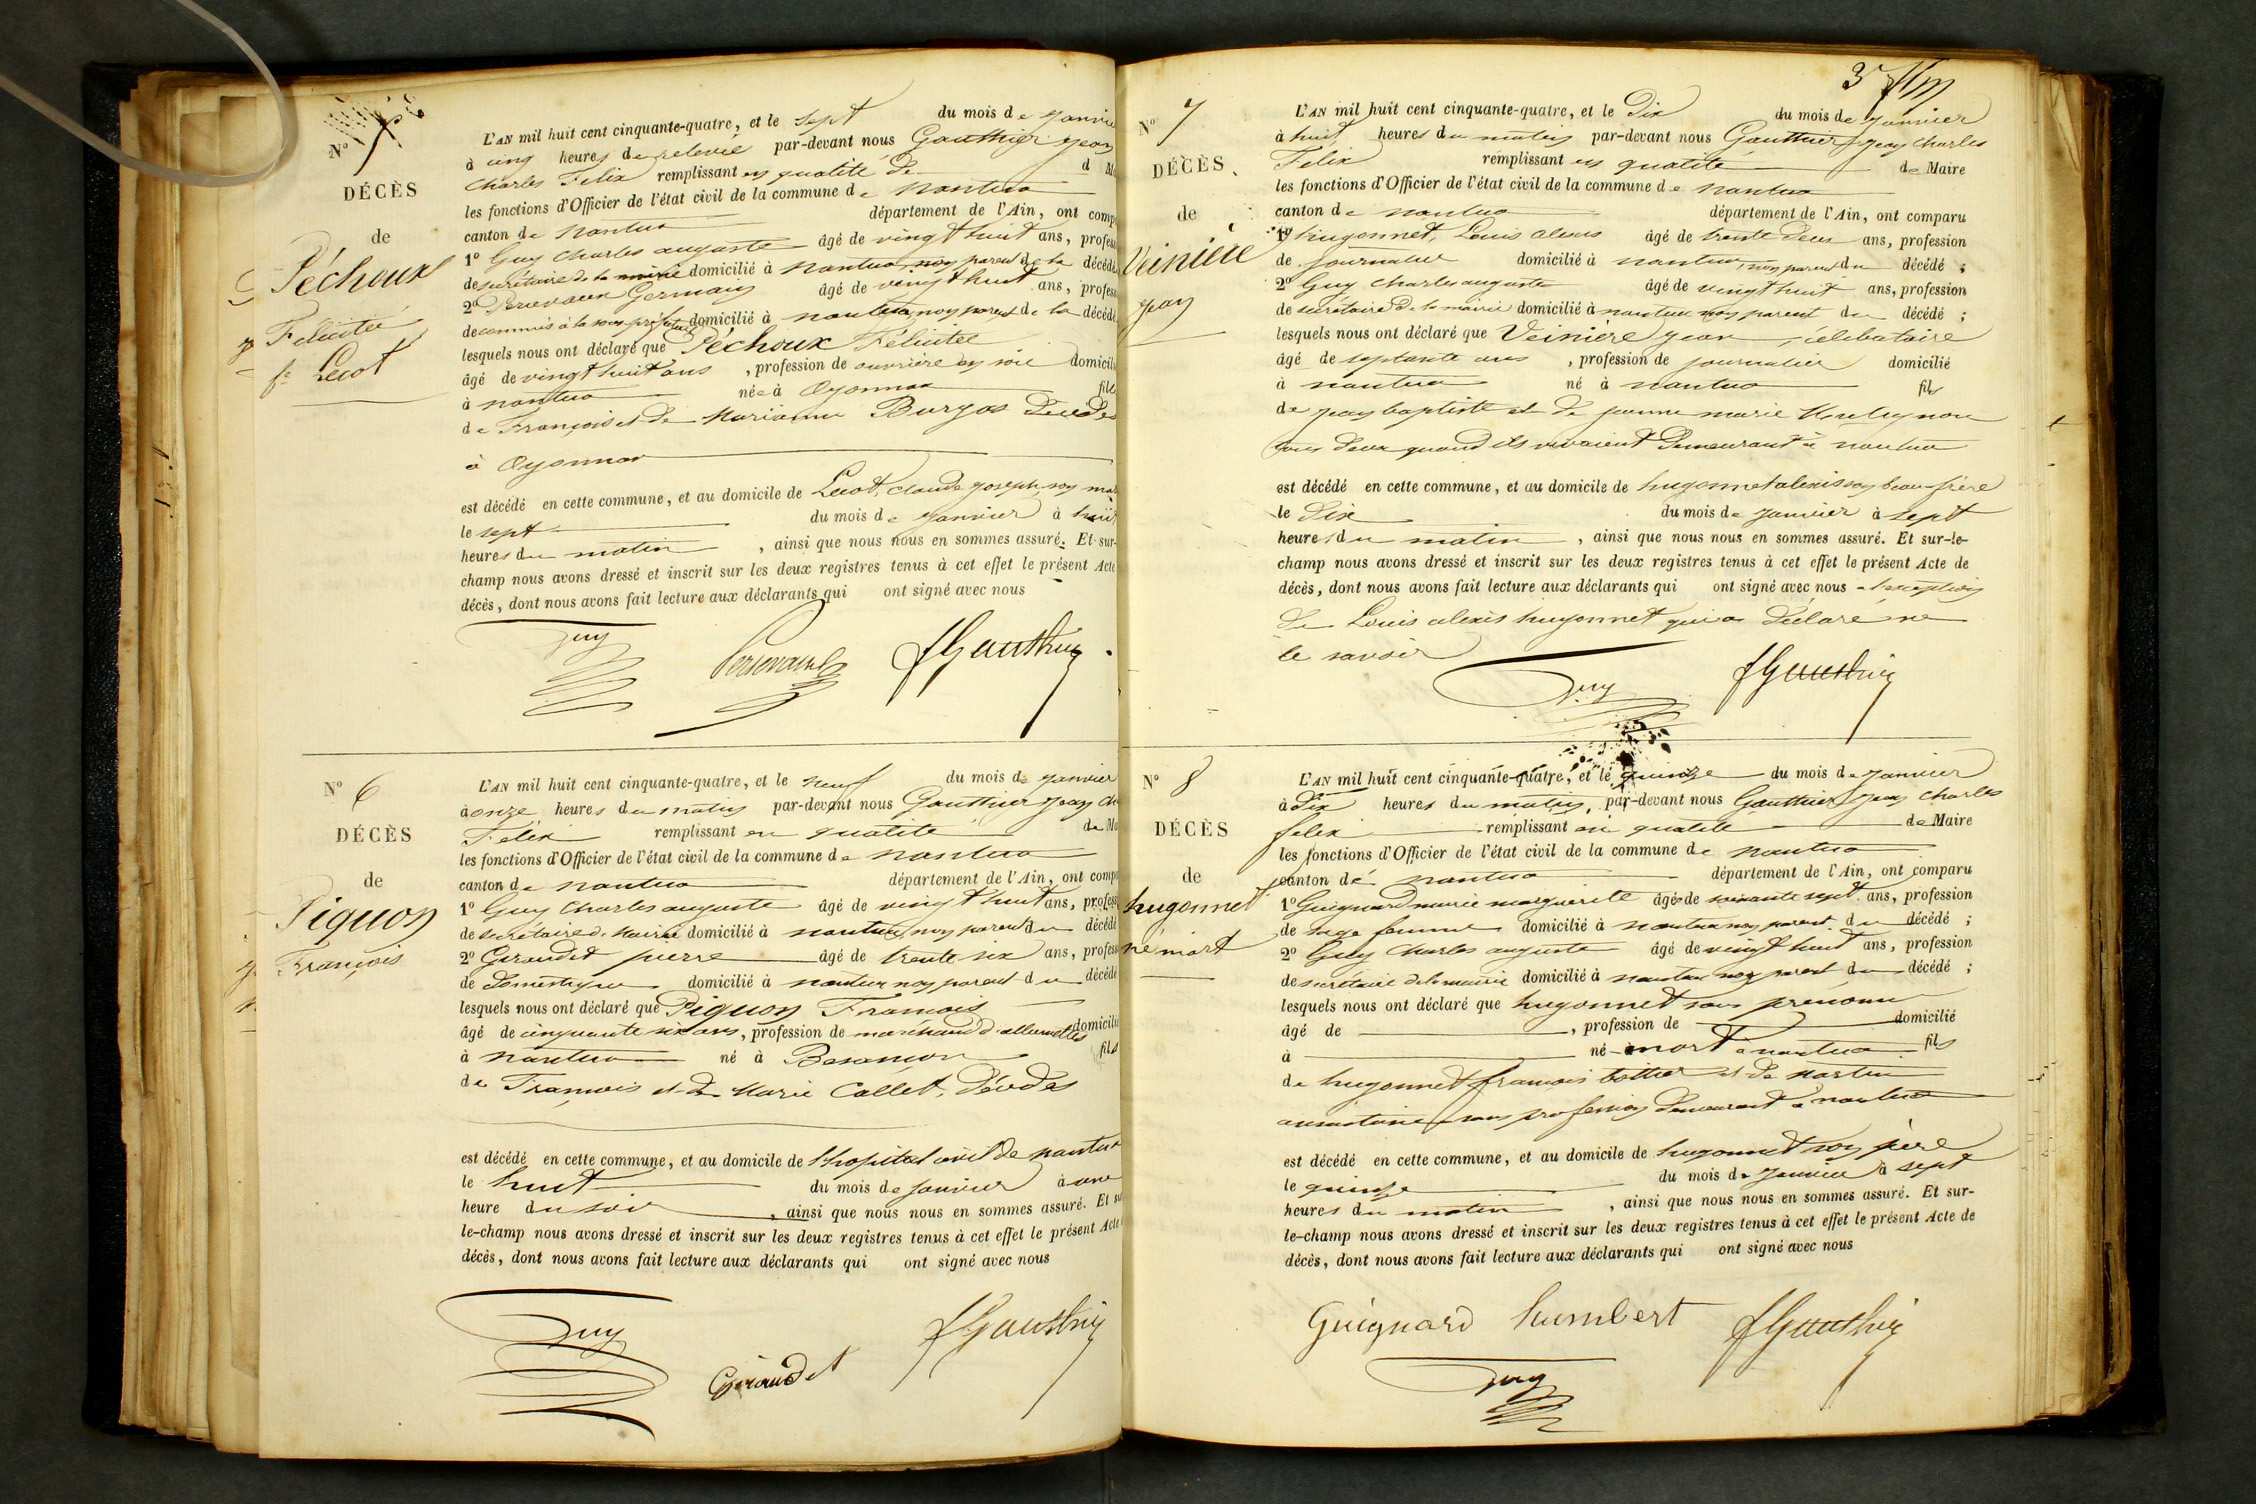 Nº
DÉCÈS
de
Péchoux
Félicitée
fe Lecot
L'AN mil huit cent cinquante-quatre, et le sept du mois de Janvier
à cinq heures de relevée par-devant nous Gauthier Jean
Charles Felix remplissant en qualité de d
les fonctions d'Officier de l'état civil de la commune de nantua
canton de Nantua département de l'Ain, ont comp
1º Guy Charles auguste âgé de vingt huit ans, profess
de secrétaire de la mairie domicilié à nantua, non parent de la décédé
2º Germain âgé de vingt huit ans, profess
de commis à la sous préfecture domicilié à nantua, non parent de la décédé
lesquels nous ont déclaré que Péchoux Félicitée
âgé de vingt huit ans, profession de ouvrière en soie domicili
à nantua née à Oyonnax fille
de François et de Marianne Burgos Décédés
à Oyonnax
est décédé en cette commune, et au domicile de Lecot, Claude Joseph, son mar
le sept du mois de Janvier à huit
heures du matin, ainsi que nous nous en sommes assuré. Et sur-
champ nous avons dressé et inscrit sur les deux registres tenus à cet effet le présent Acte
décès, dont nous avons fait lecture aux déclarants qui ont signé avec nous
Guy fGauthier
Nº 6
DÉCÈS
de
Piquon
François
L'AN mil huit cent cinquante-quatre, et le neuf du mois de Janvier
à onze heures du matin par-devant nous Gauthier Jean Ch
Félix remplissant en qualité de Ma
les fonctions d'Officier de l'état civil de la commune de nantua
canton de nantua département de l'Ain, ont comp
1º Guy Charles auguste âgé de vingt huit ans, profess
de secrétaire de Mairie domicilié à nantua, non parent du décédé
2º Giraudet pierre âgé de trente six ans, profess
de Domestique domicilié à nantua non parent du décédé
lesquels nous ont déclaré que Piquon François
âgé de cinquante six ans, profession de marchand d'allumettes domicilié
à nantua né à Besançon fils
de François et de Marie Collet, Décédés
est décédé en cette commune, et au domicile de l'hopital civil de nantua
le huit du mois de Janvier à une
heure du soir, ainsi que nous nous en sommes assuré. Et su
le-champ nous avons dressé et inscrit sur les deux registres tenus à cet effet le présent Acte
décès, dont nous avons fait lecture aux déclarants qui ont signé avec nous
Guy Giraudet fGauthier
3
Nº 7
DÉCÈS
de
Veinière
Jean
L'AN mil huit cent cinquante-quatre, et le Dix du mois de Janvier
à huit heures du matin par-devant nous Gauthier Jean Charles
Felix remplissant en qualité de Maire
les fonctions d'Officier de l'état civil de la commune de nantua
canton de nantua département de l'Ain, ont comparu
1º hugonnet, Louis alexis âgé de trente Deux ans, profession
de journalier domicilié à nantua, non parent du décédé ;
2º Guy Charles auguste âgé de vingt huit ans, profession
de secrétaire de la mairie domicilié à nantua non parent du décédé ;
lesquels nous ont déclaré que Veinière Jean, célibataire
âgé de septante ans, profession de journalier domicilié
à nantua né à nantua fils
de Jean baptiste et de jeanne marie
tous deux quand ils vivaient Demeurant à nantua
est décédé en cette commune, et au domicile de hugonnet alexis son beau-frère
le Dix du mois de Janvier à sept
heures du matin, ainsi que nous nous en sommes assuré. Et sur-le-
champ nous avons dressé et inscrit sur les deux registres tenus à cet effet le présent Acte de
décès, dont nous avons fait lecture aux déclarants qui ont signé avec nous à l'exception
de Louis alexis hugonnet qui a Déclaré ne
le savoir
Guy fGauthier
Nº 8
DÉCÈS
de
hugonnet
né mort
L'AN mil huit cent cinquante-quatre, et le quinze du mois de Janvier
à Dix heures du matin, par-devant nous Gauthier Jean Charles
felix remplissant en qualité de Maire
les fonctions d'Officier de l'état civil de la commune de nantua
canton de nantua département de l'Ain, ont comparu
1º Guignard marie marguerite âgée de soixante sept ans, profession
de sage femme domicilié à nantua non parent du décédé ;
2º Guy Charles auguste âgé de vingt huit ans, profession
de secrétaire de la mairie domicilié à nantua non parent du décédé ;
lesquels nous ont déclaré que hugonnet sans prénom
âgé de , profession de domicilié
à né mort à nantua fils
de hugonnet françois bottier et de Martin
sans profession Demeurant à nantua
est décédé en cette commune, et au domicile de hugonnet son père
le quinze du mois de Janvier à sept
heures du matin, ainsi que nous nous en sommes assuré. Et sur-
le-champ nous avons dressé et inscrit sur les deux registres tenus à cet effet le présent Acte de
décès, dont nous avons fait lecture aux déclarants qui ont signé avec nous
Guignard humbert fGauthier
Guy